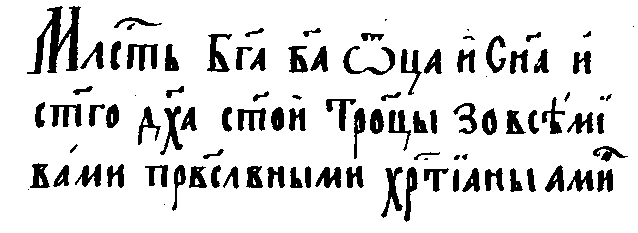 Млс҃ть Бг҃а ба҃ ѿца и҆ Сн҃а и҆
ст҃го дх҃а ст҃ой Тро҃цы зо всѣ́ми
ва́ми прв҃слвными хр҃тїаны ами҃н